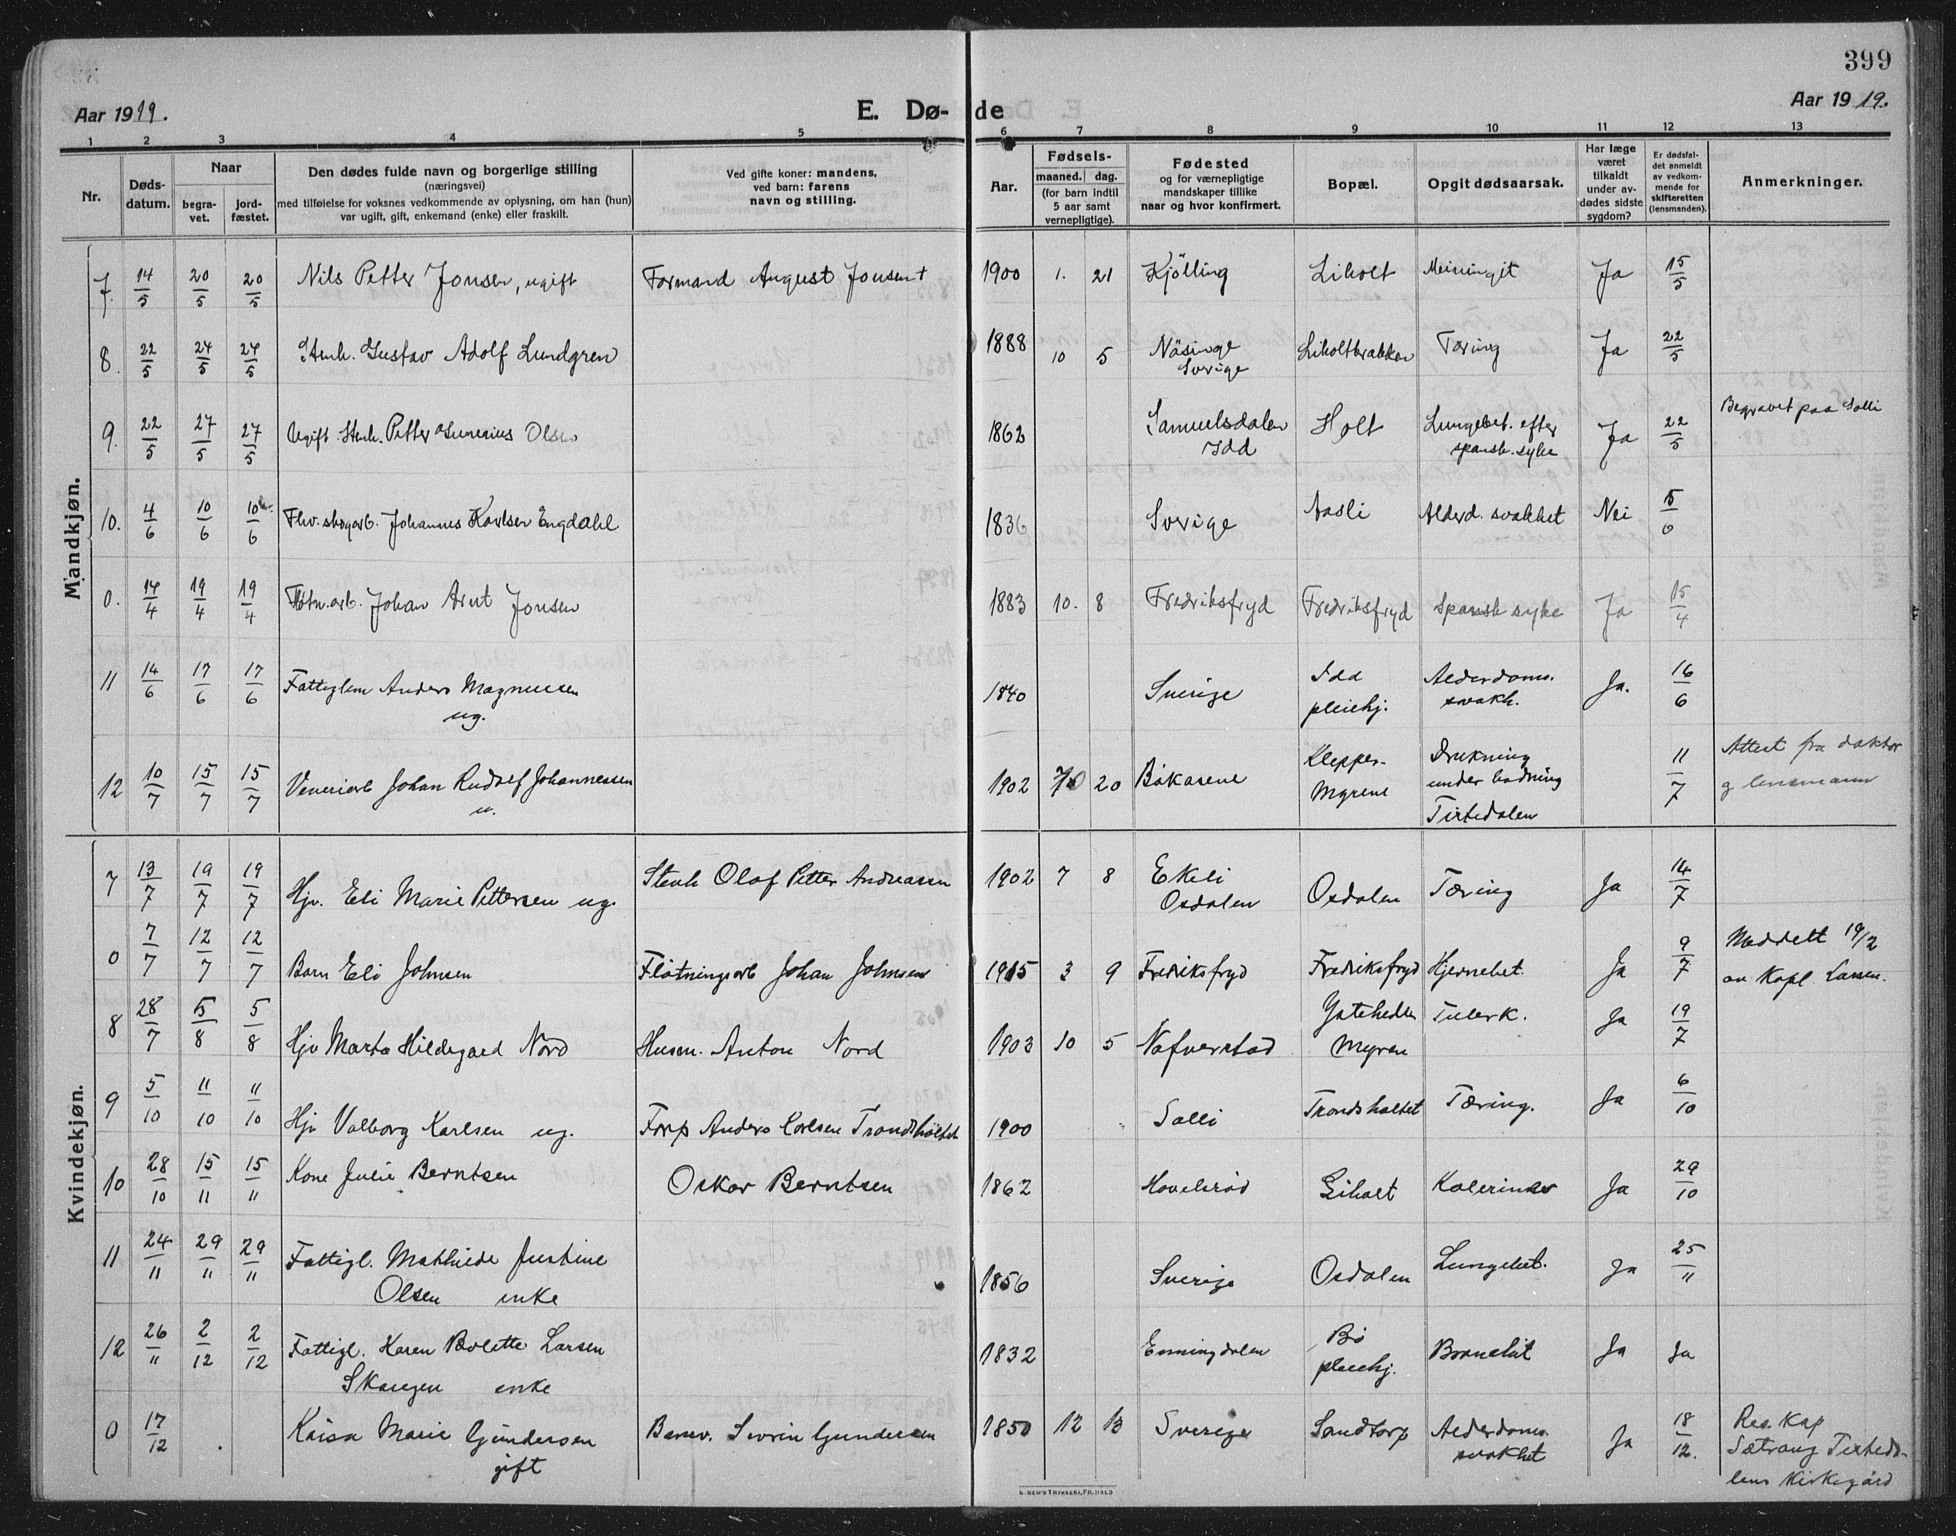 399
Aar 1919.
E. Dø-
de
Aar 1919.
1 2 3 4 5 6 7 8 9 10 11 12 13
Nr.
Døds-
datum.
Naar
begra-
vet.
jord-
fæstet.
Den dødes fulde navn og borgerlige stilling
(næringsvei)
med tilføielse for voksnes vedkommende av oplysning, om han (hun)
var ugift, gift, enkemand (enke) eller fraskilt.
Ved gifte koner: mandens,
ved barn: farens
navn og stilling.
Aar.
Fødsels-
maaned. dag.
(for barn indtil
5 aar samt
vernepligtige).
Fødested
og for værnepligtige
mandskaper tillike
naar og hvor konfirmert.
Bopæl.
Opgit dødsaarsak.
Har læge
været
tilkaldt
under av-
dødes sidste
sygdom?
Er dødsfal-
det anmeldt
av vedkom-
mende for
skifteretten
(lensmanden).
Anmerkninger.
Mandkjøn.
7. 14/5 20/5 20/5 Nils Petter Jonsen, ugift Formand August Jonsen † 1900 1. 21 Kjølling Liholt Meiningit Ja 15/5
8. 22/5 24/5 24/5 Stenh. Gustav Adolf Lundgren 1888 10 5 Näsinge Liholtbrakken Tæring Ja 22/5
Sverige
9. 22/5 27/5 27/5 Ugift Stenh. Petter Olsen 1862 Samuelsdalen Holt Lungebet. efter Ja 22/5 Begravet paa Solli
Idd spansk. syke
10. 4/6 10/6 10/6 Fhv. skogarb. Johannes Karlsen Engdahl 1836 Sverige Aasli Alderd. svakhet Nei 15/6
0. 14/4 19/4 19/4 Fløtn.arb. Johan Arnt Jonsen 1883 10. 8 Fredriksfryd Fredriksfryd Spansk syke Ja 15/4
11 14/6 17/6 17/6 Fattiglem Anders Magnussen 1840 Sverige Idd Alderdoms- Ja. 16/6
ug. pleiehj. svakh.
12 10/7 15/7 15/7 Johan Rudolf Johannessen 1902 20 Båkasene Klepper- Drukning 11/7 Attest fra doktor
u. Myrene under badning og lensmann
Tistedalen
Kvindekjøn.
7 13/7 19/7 19/7 Hjv. Eli Marie Pettersen ug. Stenh Olaf Petter Andreasen 1902 7 8 Ekeli Osdalen Tæring Ja 14/7
Osdalen
0 7/7 12/7 12/7 Barn Eli Johnsen Fløtningsarb Johan Johnsen 1915 3 9 Fredriksfryd Fredriksfryd Hjernebet. Ja 9/7 Meddelt 19/2
av Kapl. Larsen.
8 28/7 5/8 5/8 Hjv Marta Hildegard Nord Husm. Anton Nord 1903 10 5 Nafverstad Tuberk. Ja 19/7
Myren
9 5/10 11/10 11/10 Hjv Valborg Karlsen ug. Forp Anders Carlsen Trondsholtet 1900 Solli Trondsholtet Tæring. Ja 6/10
10 28/10 15/11 15/11 Kone Julie Berntsen Oskar Berntsen 1862 Hovelsrød Liholt Ja 29/10
11 24/11 29/11 29/11 Fattigl. Mathilde Justine 1856 Sverige Osdalen Lungebet. Ja 25/11
Olsen enke
12 26/11 2/12 2/12 Fattigl. Karen Bolette Larsen 1832 Enningdalen Bø Ja Ja
Skaugen enke pleiehj.
0 17/12 Kaisa Marie Gundersen Banev. Sevrin Gundersen 1850 12 13 Sverige Sandtorp Alderdoms- Ja 18/12. Res Kap
gift svakhet Sætrang Tisteda-
lens Kirkegård